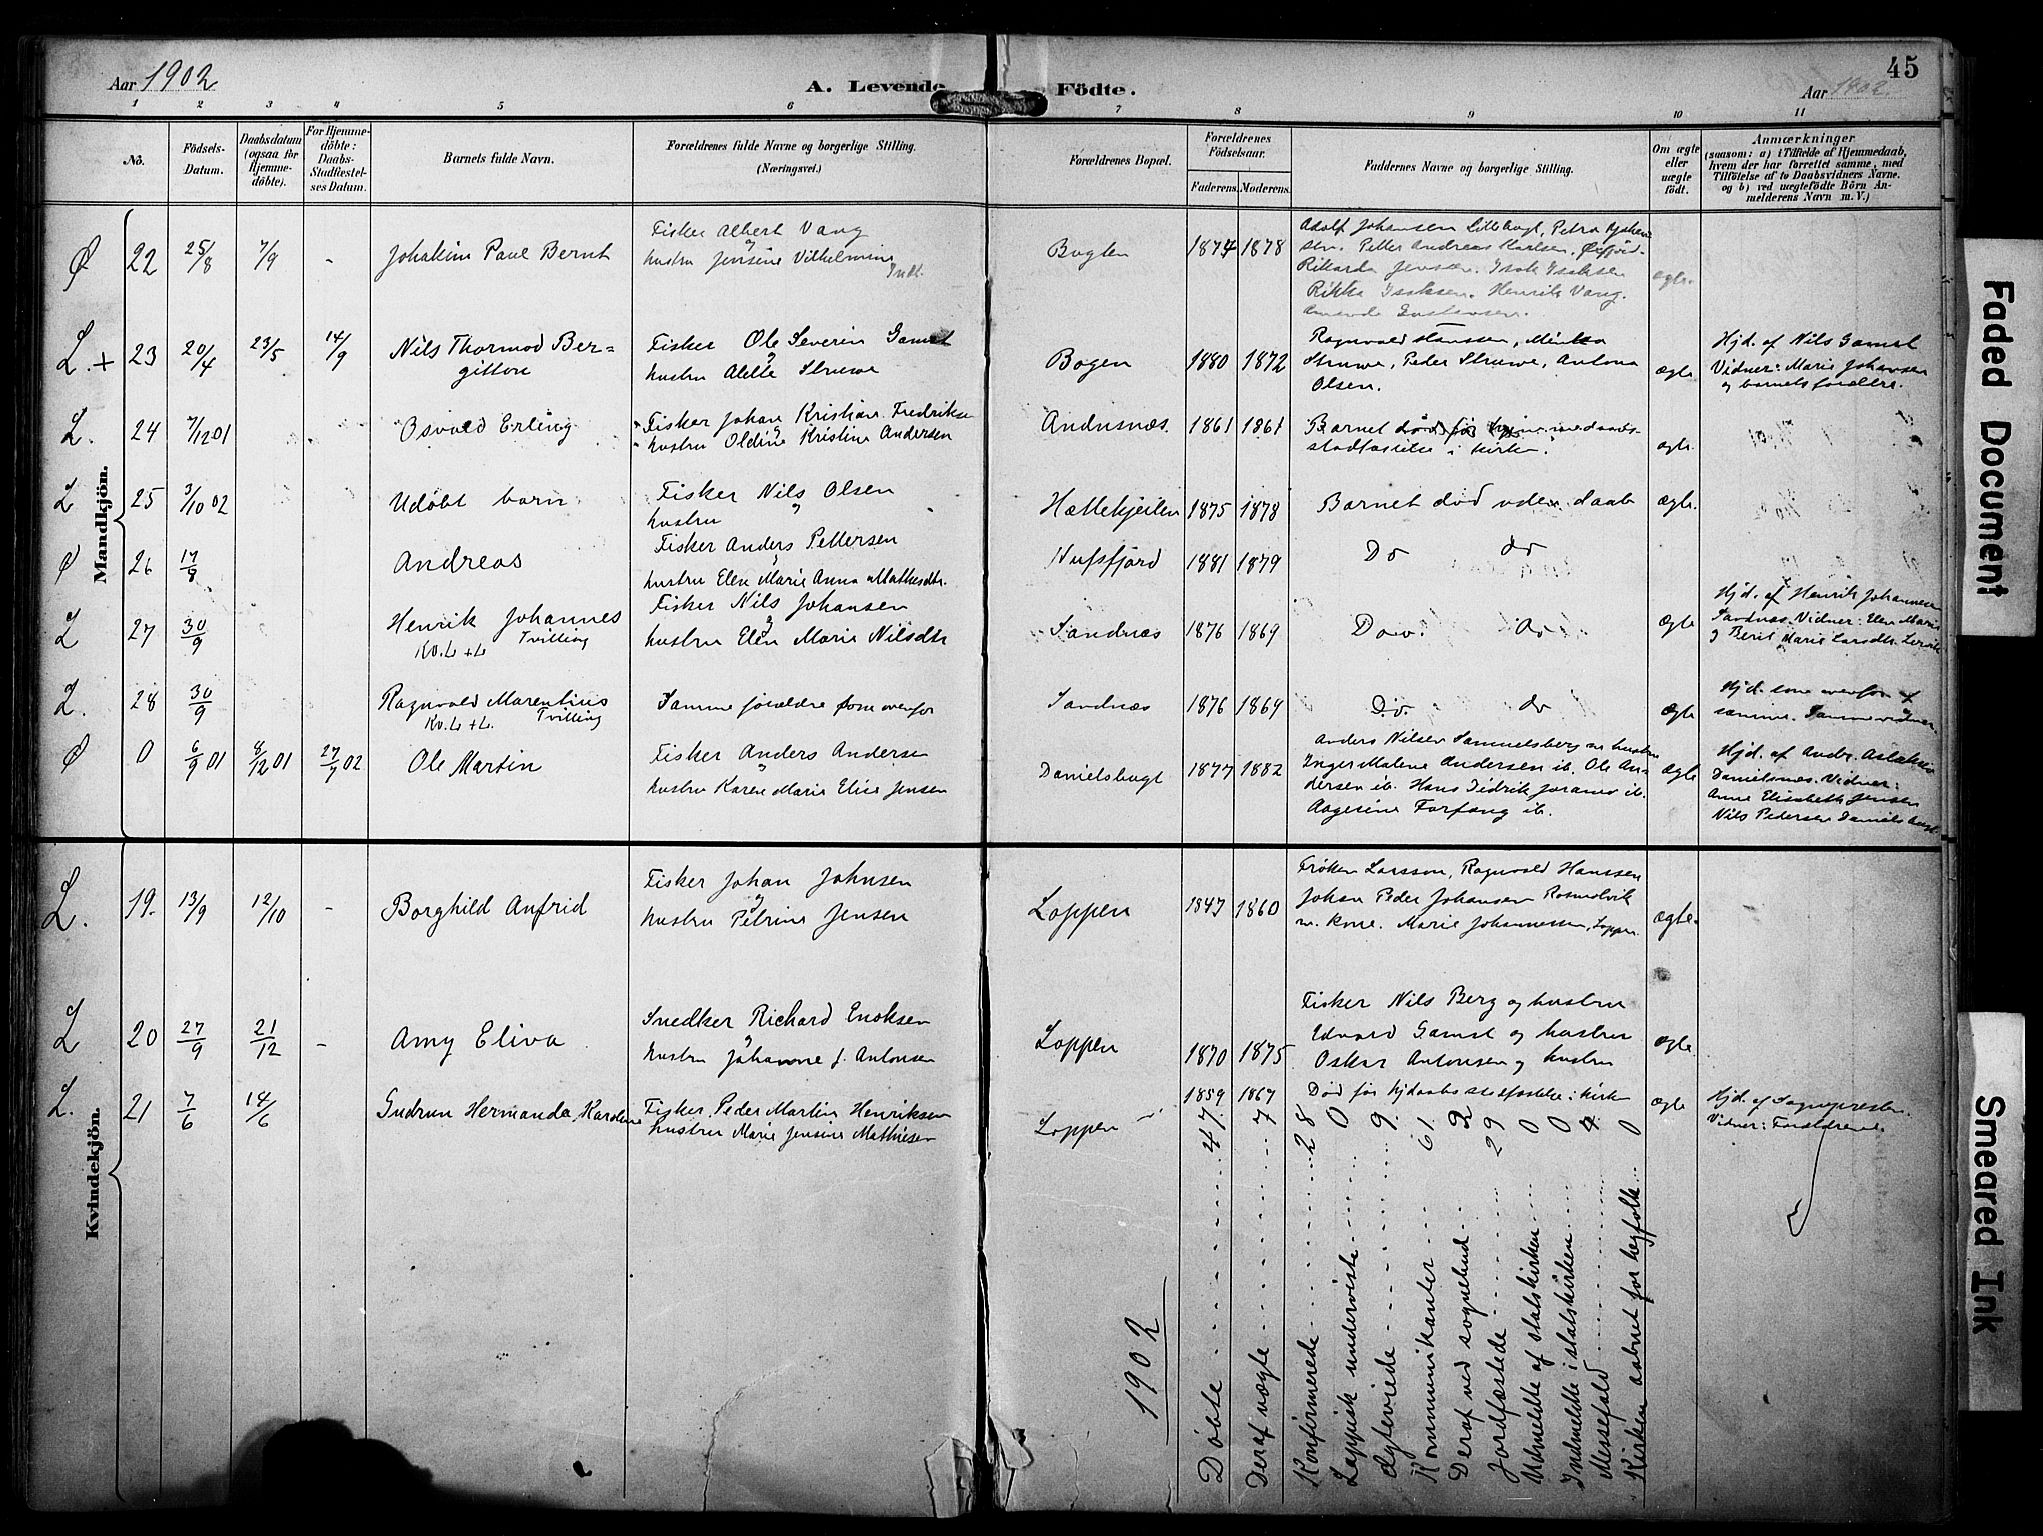 45
Aar 1902
A. Levende Födte.
Aar 1902.
1 2 3 4 5 6 7 8 9 10 11
No.
Födsels-Datum.
Daabsdatum (ogsaa for Hjemme-döbte).
For Hjemme-döbte: Daabs-Stadfæstel-ses Datum.
Barnets fulde Navn.
Forældrenes fulde Navne og borgerlige Stilling.
(Næringsvei.)
Forældrenes Bopæl.
Forældrenes Födselsaar.
Faderens. Moderens.
Faddernes Navne og borgerlige Stilling.
Om ægte eller uægte födt.
Anmærkninger
(saasom: a) i Tilfælde af Hjemmedaab,
hvem der har forrettet samme, med
Tilföielse af to Daabsvidners Navne.
og b) ved uægtefödte Börn An-
melderens Navn m. V.)
Mandkjön.
Ø 22 25/8 7/9 - Johakim Paul Bernt
Fisker Albert Vang
hustru Jensine Vilhelmine
Bogten 1874 1878
Adolf Johansen Lillebugt, Petra
Petter Andreas Karlsen, Øxfjord.
Rikarda Jensen. Isak Isaksen
Rikka Isaksen. Henrik Vang.
ægte.
L. + 23 20/4 23/5 14/9 Nils Thormod Ber=
gitton
Fisker Ole Severin Gamst
hustru Alette Struwe
Bogen 1880 1872
Ragnvald Hanssen, Minka
Struwe, Peder Struwe, Antona
Olsen.
ægte
Hjd. af Nils Gamst
Vidner: Marie Johansen
og barnets forældre.
L. 24 7/12 01 Osvald Erling
Fisker Johan Kristian Fredriksen
hustru Oldine Kristine Andersen
Andnsnæs. 1861 1861
Barnet død før hjemmedaabs-
stadfæstelse i kirken.
ægte.
L 25 3/10 02 Udøbt barn
Fisker Nils Olsen
hustru
Hættekjeilen 1875 1878
Barnet død uden daab
ægte.
Ø 26 17/8 Andreas
Fisker Anders Pettersen
hustru Elen Marie Anna Mathisdtr.
Nufsfjord 1881 1879
Do do
L 27 30/9 Henrik Johannes
Ko. L + L Tvilling
Fisker Nils Johansen
hustru Elen Marie Nilsdtr
Sandnæs 1876 1869
Do do
ægte
Hjd. af Henrik Johannesen
Sandnæs. Vidner: Elen Marie
og Berit Marie Larsdtr.
L. 28 30/9 Ragnvald Marentius
Ko. L + L. Tvilling
Samme forældre som ovenfor
Sandnæs 1876 1869
Do. do
ægte
Hjd. som ovenfor af
samme. Samme vidner.
Ø 0 6/9 01 8/12 01 27/7 02 Ole Martin
Fisker Anders Andersen
hustru Karen Marie Elise Jensen
Danielsbugt 1877 1882
Anders Nilsen Samuelsberg m. hustru
Inger Malene Andersen ib. Ole An-
dersen ib. Hans Didrik Joramo ib.
Aagesine Forfang ib.
ægte
Hjd. af Andr. Aslaksen
Danielsnæs. Vidner:
Anne Elisabeth Jensen
Nils Pedersen Danielsbugt.
Kvindekjön.
L. 19. 13/9 12/10 - Borghild Anfrid
Fisker Johan Johnsen
hustru Petrine Jensen
Loppen 1847 1860
Frøken Larsson, Ragnvald Hanssen
Johan Peder Johansen
m. kone. Marie Johannessen, Loppen.
ægte.
L 20 27/9 21/12 - Amy Eliva
Snedker Richard Enoksen
hustru Johanne f. Antonsen
Loppen 1870 1875
Fisker Nils Berg og hustru
Edvard Gamst og hustru
Oskar Antonsen og hustru
ægte.
L. 21 7/6 14/6 Gudrun Hermanda Karoline
Fisker Peder Martin Henriksen
hustru Marie Jensine Mathisen
Loppen 1859 1867
Død før hjdaabs stadfæstelse i kirken
ægte
Hjd. af Sognepresten.
Vidner: Forældrene.
1902
Døbte 47.
Deraf uægte 7
Konfirmerede 28
Lappisk underviste 0
Ægteviede 9.
Kommunikanter 61.
Deraf ved sognebud 2
Jordfæstede 29
Udmeldte af statskirken 0
Indmeldte i statskirken 0
Messefald 4
Kirken aabnet for legfolk 0
Faded Document
Smeared Ink